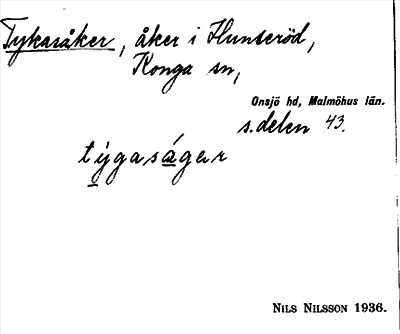 Tykasåker, åker i Hunseröd,
Konga sn,
Onsjö hd, Malmöhus län.
s. delen 43.
týgaságar
NILS NILSSON 1936.